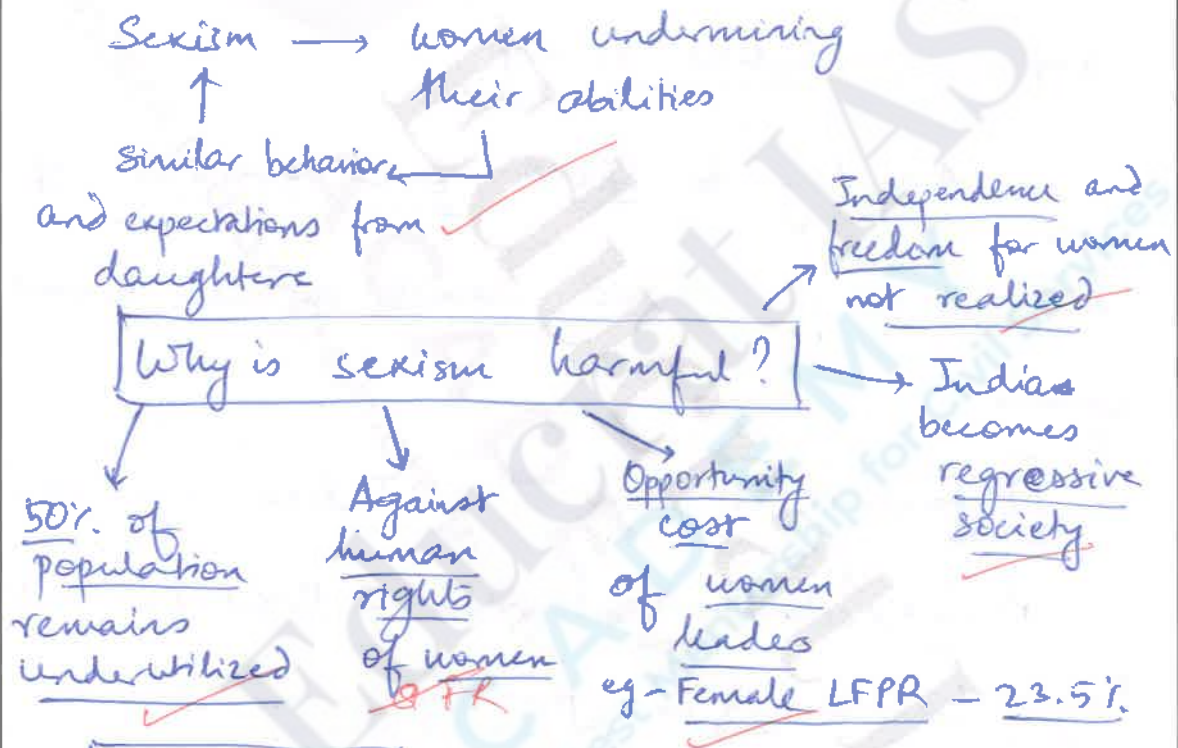 Sexism → women undermining
their abilities
similar behavior
and expectations from
daughters
Independence and
freedom for women
not realized
Why is sexism harmful?
India
becomes
regressive
society
50% of
population
remains
underutilized
Against
human
rights
of women
FR
Opportunity
cost
of women
leades
eg - Female LFPR - 23.5%
Educrat IAS
ACADEMY